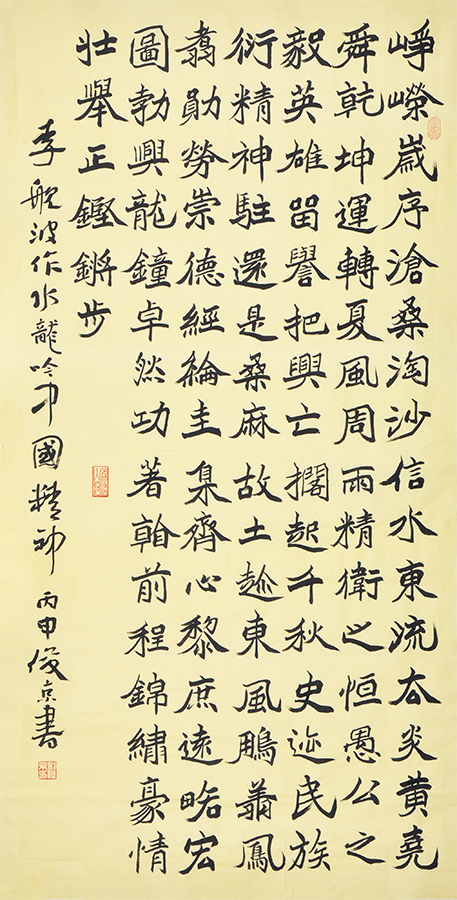 崢嶸嵗序滄桑淘沙信水東流去炎黃堯
舜乾坤運轉夏風周雨精衛之恒愚公之
毅英雄留譽把興亡擱起千秋史迹民族
衍精神駐還是桑麻故土趁東風鵬鳳
翥勛勞崇德經綸圭臬齊心黎庶遠略宏
圖勃興龍鐘卓然功著斡前程錦繡豪情
壯舉正鏗鏘步
李舰波作水龍吟中國精神丙申俊京書